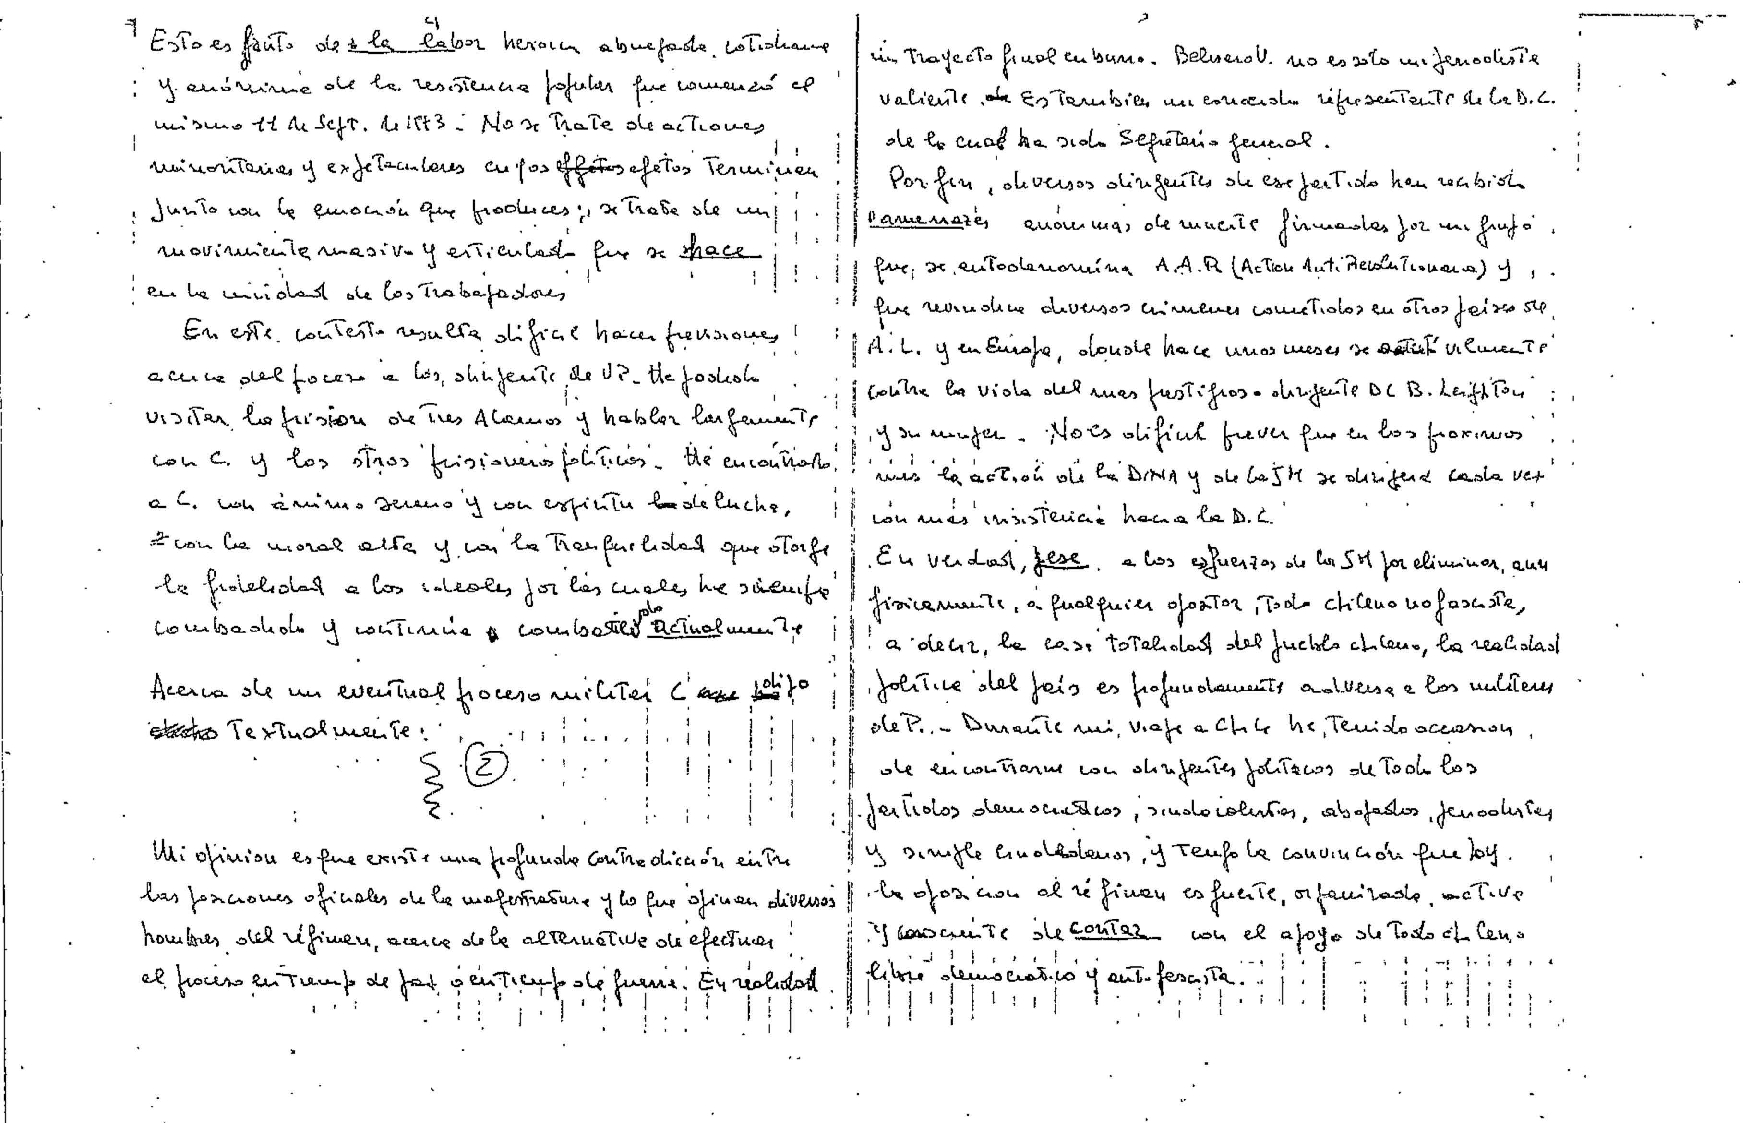 Esto es fruto de la labor heroica abnegada, cotidiana
y anónima de la resistencia popular que comenzó el
mismo 11 de Sept. de 1973 - No se trata de acciones
minoritarias y espetaculares cuyos efetos terminan
junto con la emoción que produces; se trata de un
movimiento masivo y articulado que se hace
en la unidad de los trabajadores
En este contesto resulta dificil hacer previsiones
acerca del proceso a los dirigente de UP. He podido
visitar la prision de Tres Alamos y hablar largamente
con C. y los otros prisioneros politicos. He encontrado
a C. con ánimo sereno y con espiritu de lucha,
con la moral alta y con la tranquilidad que otorga
la fidelidad a los ideales por los cuales ha siempre
combatido y continúa actualmente
Acerca de un eventual proceso militar C dijo
textualmente:
2
Mi opinion es que existe una profunda contradicción entre
las posiciones oficiales de la magistratura y lo que opinan diversos
hombres del régimen, acerca de la alternativa de efectuar
el proceso en tiempo de paz o en tiempo de guerra. En realidad
un trayecto final en burro. Belisario V. no es solo un periodista
valiente. Es tambien un conocido representante de la D.C.
de la cual ha sido Segretario general.
Por fin, diversos dirigentes de ese partido han recibido
amenazas anónimas de muerte firmadas por un grupo
que se autodenomina A.A.R (Action Anti Revolutionaria) y
que revindica diversos crimenes cometidos en otros paises de
A.L. y en Europa, donde hace unos meses se vilmente
contra la vida del mas prestigioso dirigente DC B. Leighton
y su mujer - No es dificil prever que en los proximos
mes la action de la DINA y de la JM se dirigerá cada vez
con más insistencia hacia la D.C.
En verdad, pese a los esfuerzos de la JM por eliminar, aun
fisicamente, a qualquier opositor, todo chileno no fascista,
a decir, la casi totalidad del pueblo chileno, la realidad
politica del país es profundamente adversa a los militares
de P. - Durante mi viaje a Chile he tenido occasion
de encontrarme con dirigentes politicos de todo los
partidos democraticos, sindacalistas, abogados, periodistas
y simple ciudadanos, y tengo la convinción que hoy
la oposicion al régimen es fuerte, organizada, activa
y consciente de contar con el apoyo de todo chileno
libre democratico y antifascista.